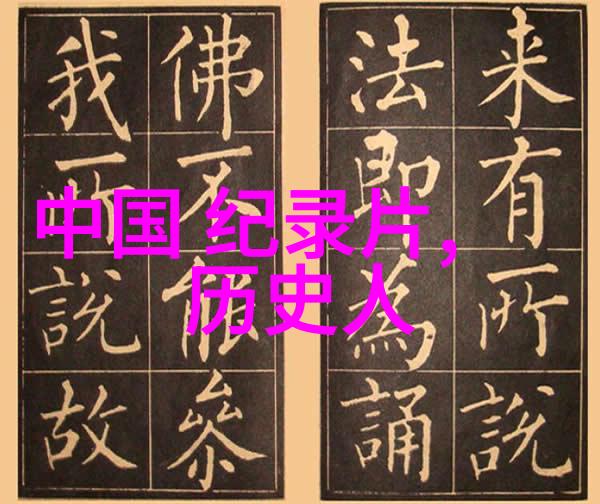 来有所說
法即為誦
佛不能叅
我所說故
中国 纪录片，
历史人